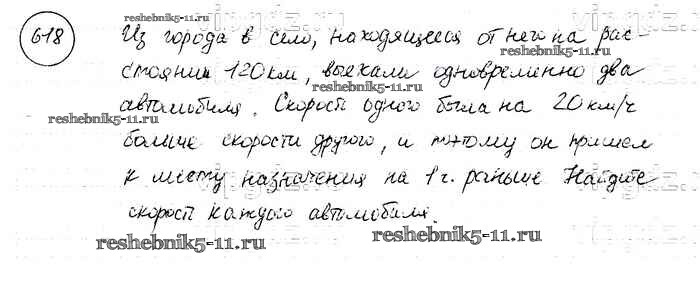 reshebnik5-11.ru
618 Из города в село, находящееся от него на рас
стоянии 120 км, выехали одновременно два
автомобиля. Скорость одного была на 20 км/ч
reshebnik5-11.ru
больше скорости другого, и поэтому он пришел
к месту назначения на 1 ч. раньше Найдите
скорость каждого автомобиля.
reshebnik5-11.ru reshebnik5-11.ru